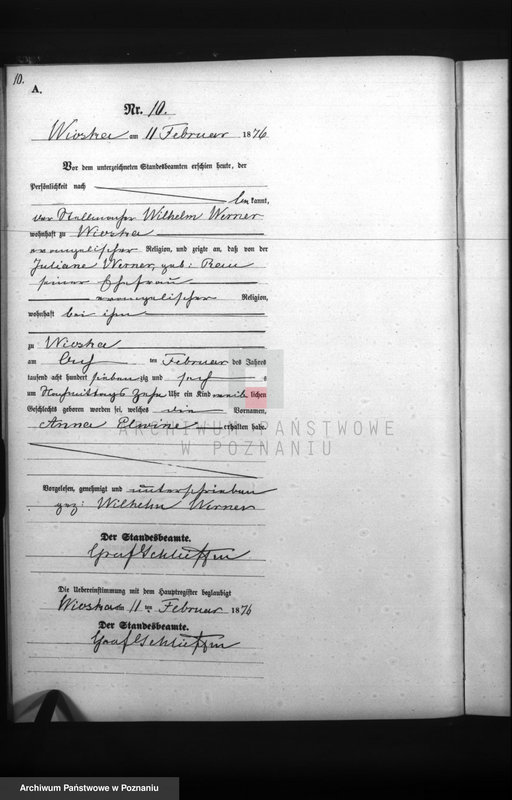 10.
A.
Nr. 10.
Wioska am 11 Februar 1876
Vor dem unterzeichneten Standesbeamten erschien heute, der
Persönlichkeit nach
bekannt,
der Stellmacher Wilhelm Werner
wohnhaft zu Wioska
evangelischer Religion, und zeigte an, daß von der
Juliane Werner, geb: Rau
seiner Ehefrau
evangelischer Religion,
wohnhaft bei ihm
zu Wioska
am ten Februar des Jahres
tausend acht hundert siebenzig und sechs
um Nachmittags zehn Uhr ein Kind weiblichen
Geschlechts geboren worden sei, welches die Vornamen,
Anna Elwine erhalten habe.
ARCHIWUM PAŃSTWOWE
W POZNANIU
Vorgelesen, genehmigt und unterschrieben
gez: Wilhelm Werner
Der Standesbeamte.
Graf Schlieffen
Die Uebereinstimmung mit dem Hauptregister beglaubigt
Wioska am 11 ten Februar 1876
Der Standesbeamte.
Graf Schlieffen
Archiwum Państwowe w Poznaniu